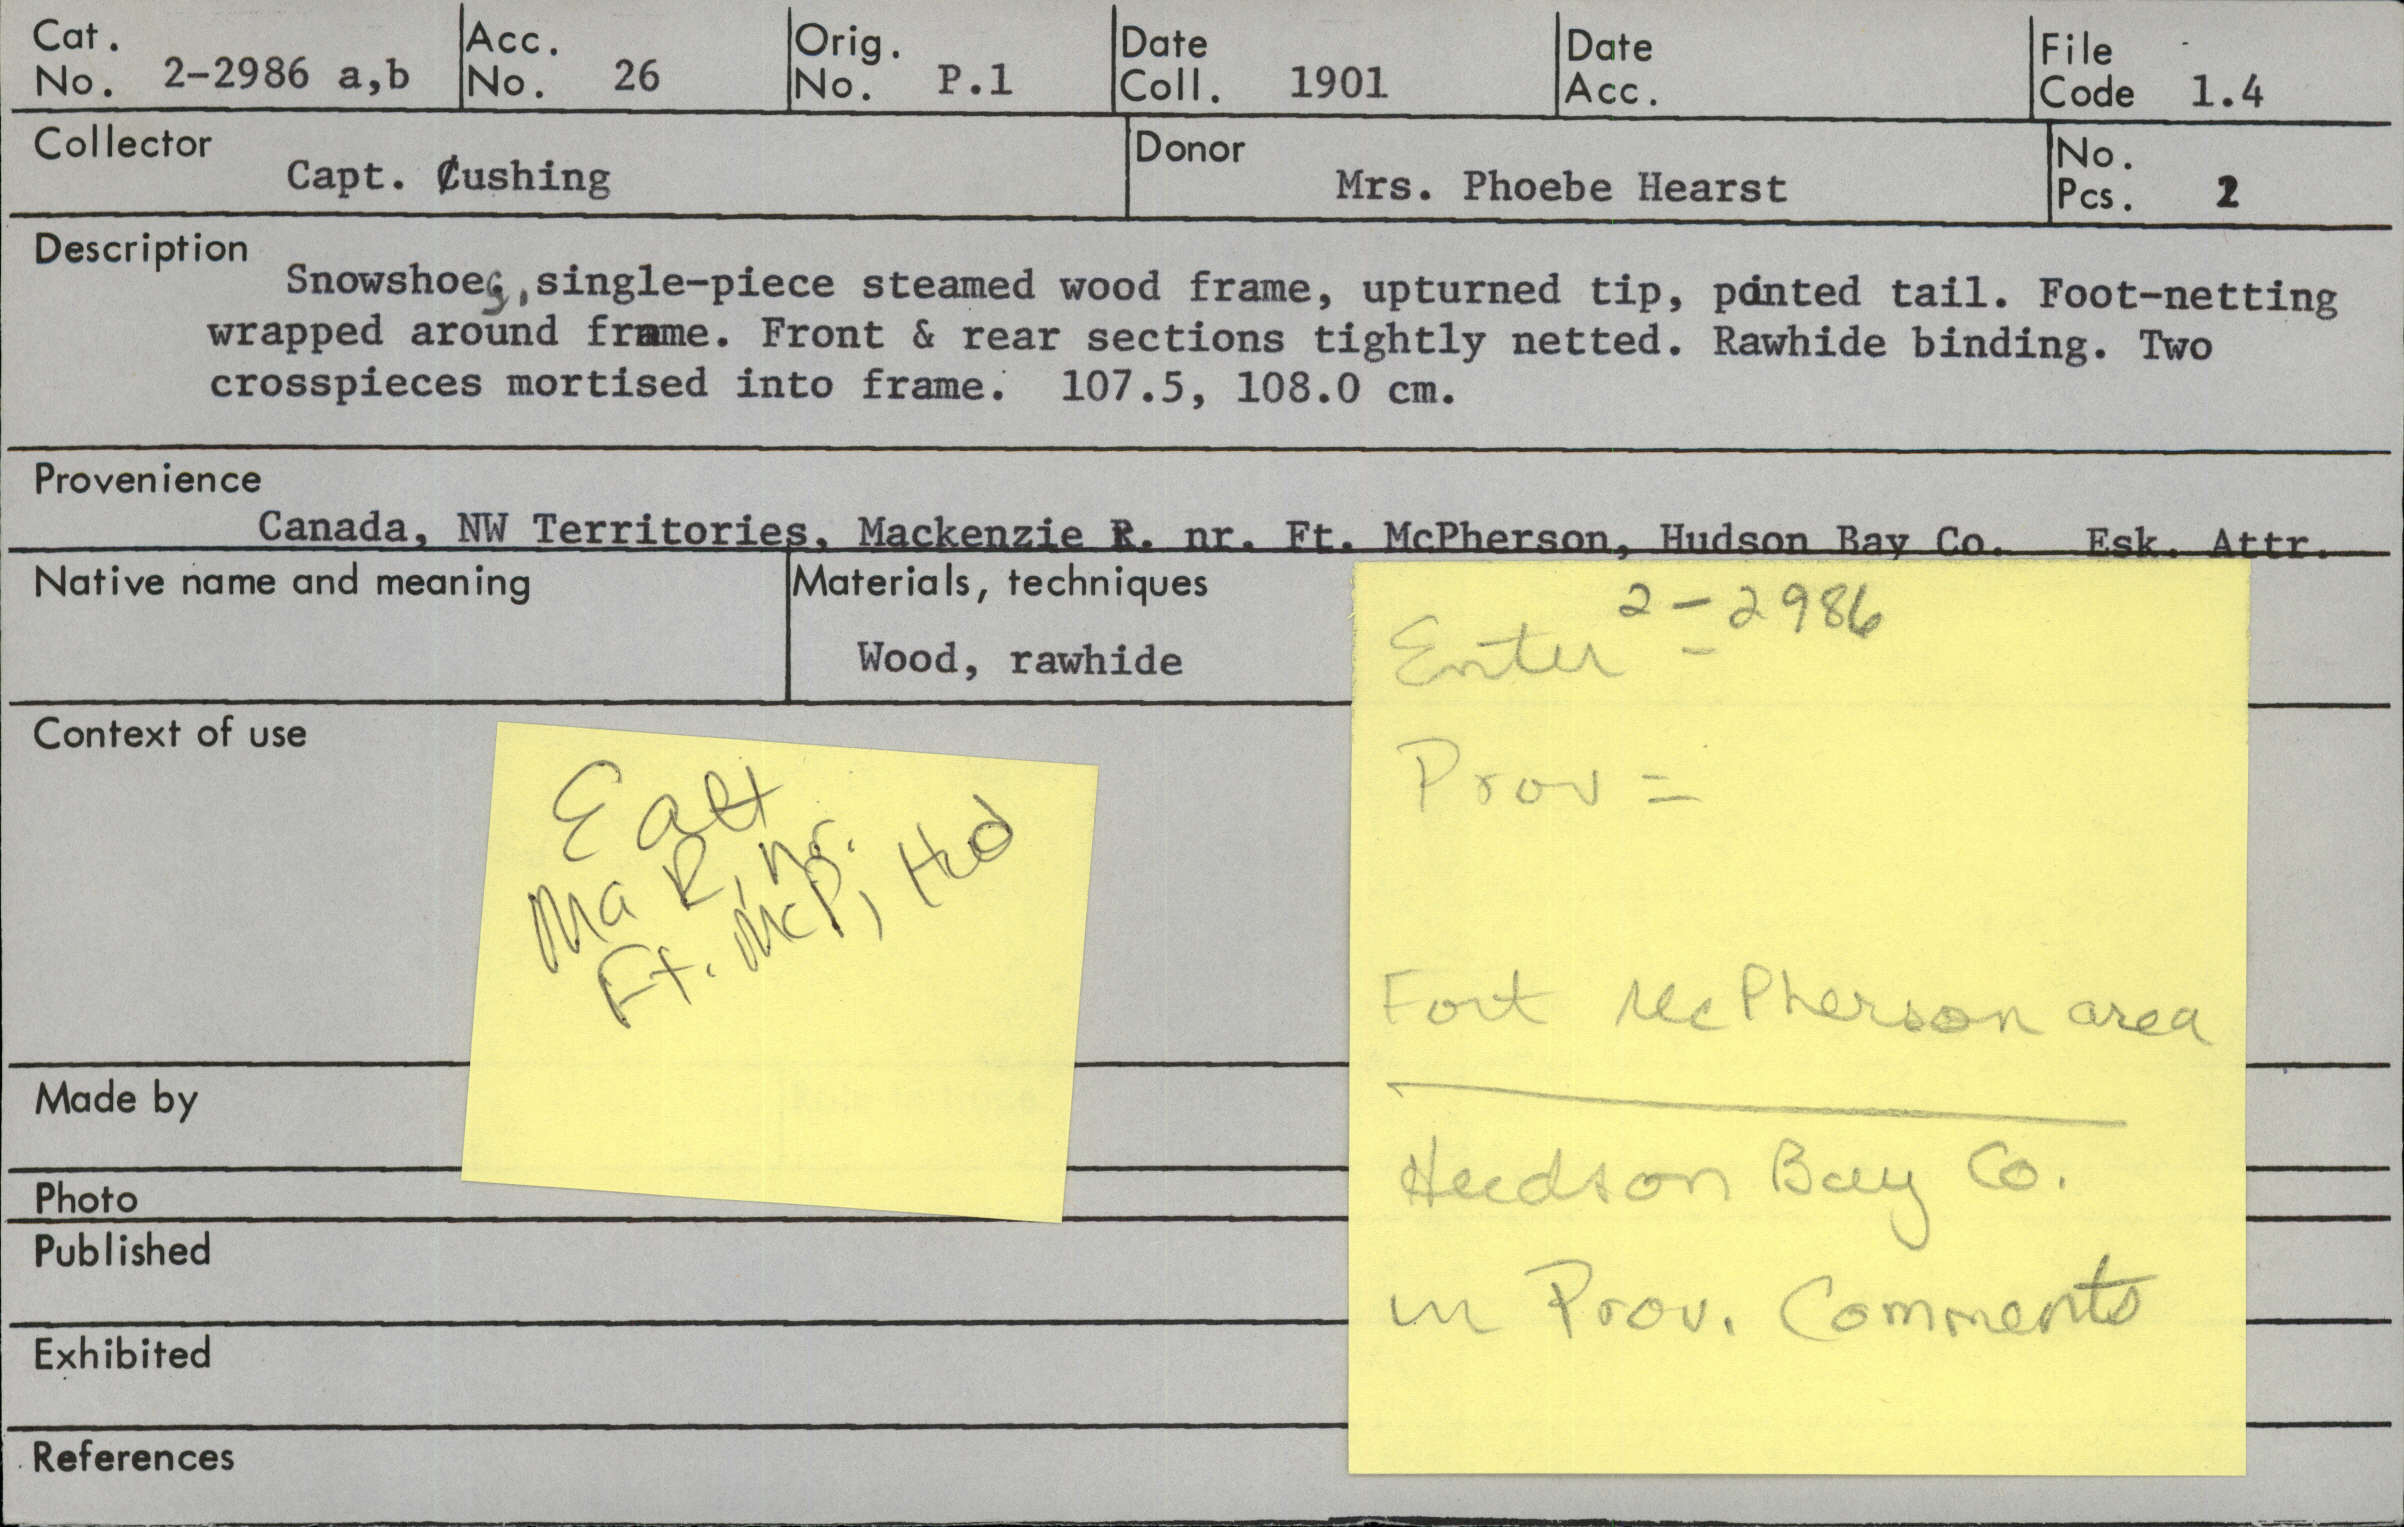 Cat. No. 2-2986 a,b
Acc. No. 26
Orig. No. P.1
Date Coll. 1901
Date Acc.
File Code 1.4
Collector
Capt. Cushing
Donor
Mrs. Phoebe Hearst
No. Pcs. 2
Description
Snowshoes, single-piece steamed wood frame, upturned tip, pointed tail. Foot-netting
wrapped around frame. Front & rear sections tightly netted. Rawhide binding. Two
crosspieces mortised into frame. 107.5, 108.0 cm.
Provenience
Canada, NW Territories, Mackenzie R. nr. Ft. McPherson, Hudson Bay Co. Esk. Attr.
Native name and meaning
Materials, techniques
Wood, rawhide
2-2986
Enter -
Prov =
Fort McPherson area
Hudson Bay Co.
in Prov. Comments
Context of use
Ma R, nr.
Ft. McP, Hud
Made by
Photo
Published
Exhibited
References